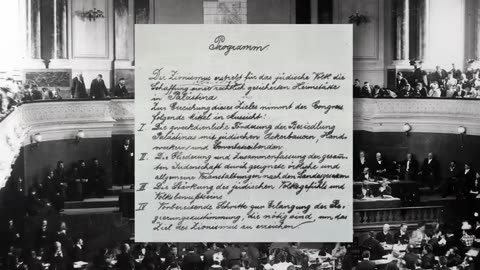 Programm.
Der Zionismus erstrebt für das jüdische Volk die
Schaffung einer rechtlich gesicherten Heimstätte
in Palästina
Zur Erreichung dieses Zieles nimmt der Congress
folgende Mittel in Aussicht:
I Die zweckdienliche Förderung der Besiedlung
Palästinas mit jüdischen Ackerbauern, Hand
werkern und
II Die Gliederung und Zusammenfassung der gesam
ten Judenschaft durch geeignete örtliche und
allgemeine Veranstaltungen nach den Landesgesetzen
III Die Stärkung des jüdischen Volksgefühls und
Volksbewusstseins
IV Vorbereitende Schritte zur Erlangung der Re
gierungszustimmung, die nötig sind um das
Ziel des Zionismus zu erreichen